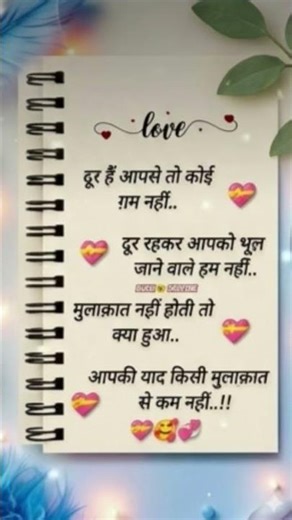 love
दूर हैं आपसे तो कोई
ग़म नहीं..
दूर रहकर आपको भूल
जाने वाले हम नहीं..
मुलाक़ात नहीं होती तो
क्या हुआ..
आपकी याद किसी मुलाक़ात
से कम नहीं..!!